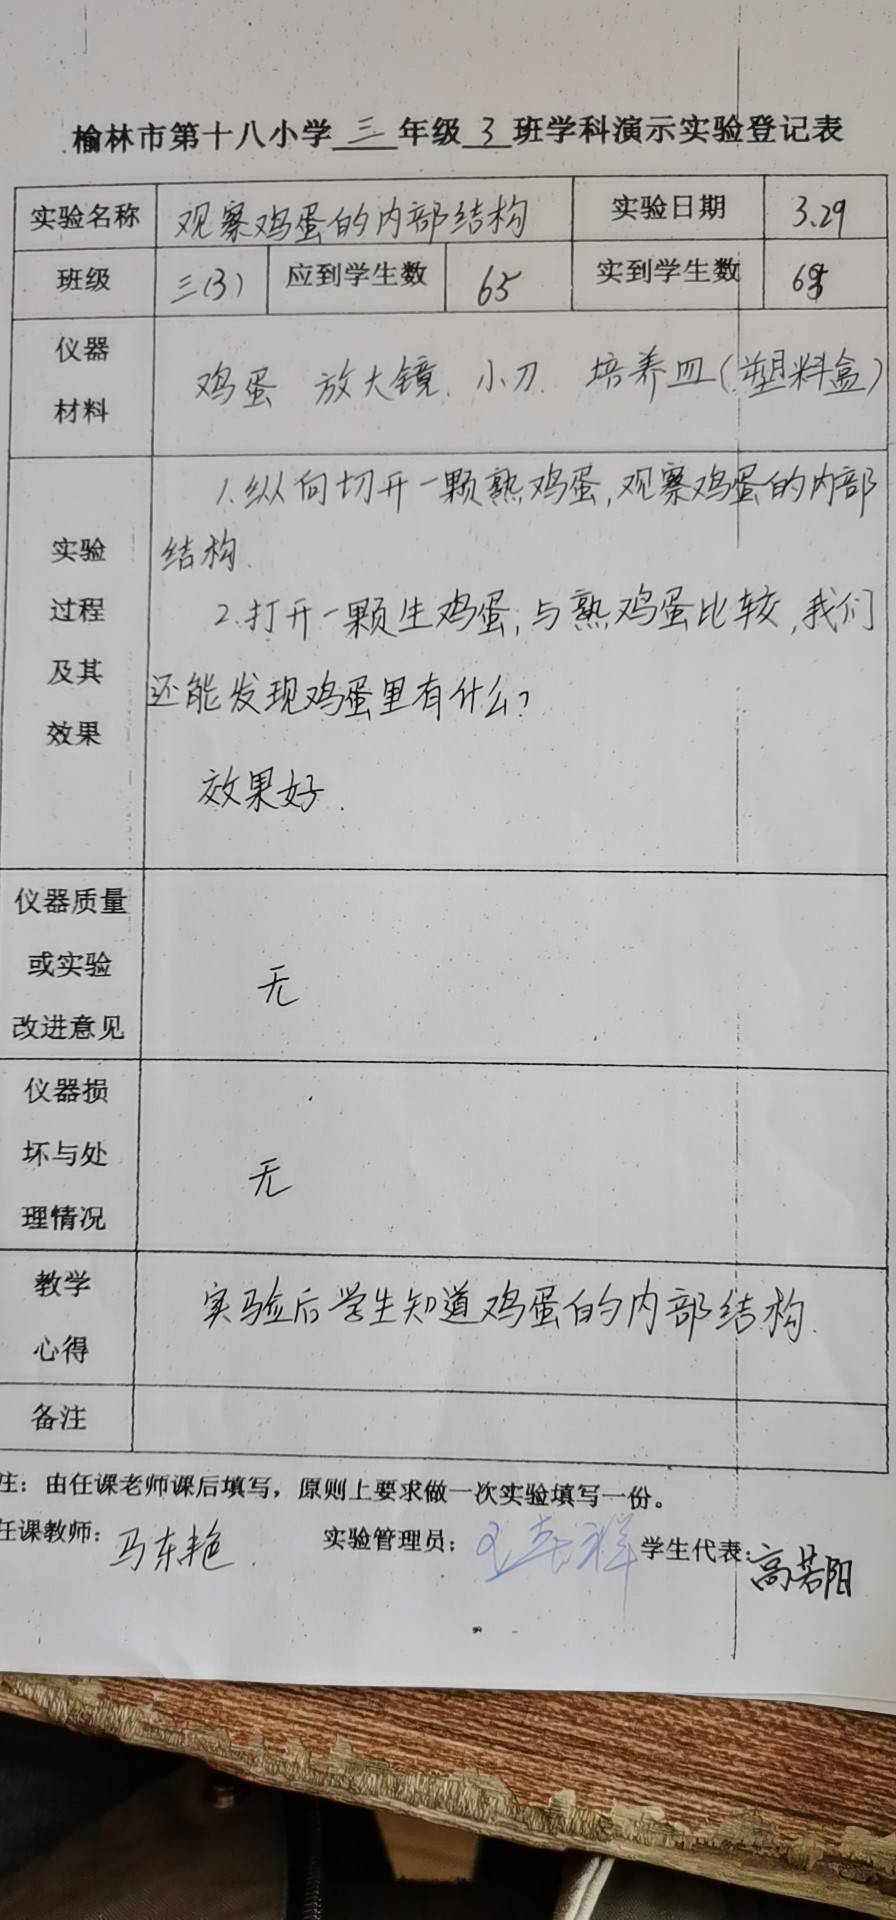 榆林市第十八小学 三 年级 3 班学科演示实验登记表
实验名称 观察鸡蛋的内部结构 实验日期 3.29
班级 三(3) 应到学生数 65 实到学生数
仪器
材料
鸡蛋 放大镜. 小刀. 培养皿(塑料盒)
实验
过程
及其
效果
1.纵向切开一颗熟鸡蛋,观察鸡蛋的内部
结构.
2.打开一颗生鸡蛋,与熟鸡蛋比较,我们
还能发现鸡蛋里有什么?
效果好.
仪器质量
或实验
改进意见
无
仪器损
坏与处
理情况
无
教学
心得
实验后学生知道鸡蛋的内部结构.
备注
注：由任课老师课后填写，原则上要求做一次实验填写一份。
任课教师：马东艳. 实验管理员： 学生代表：高若阳